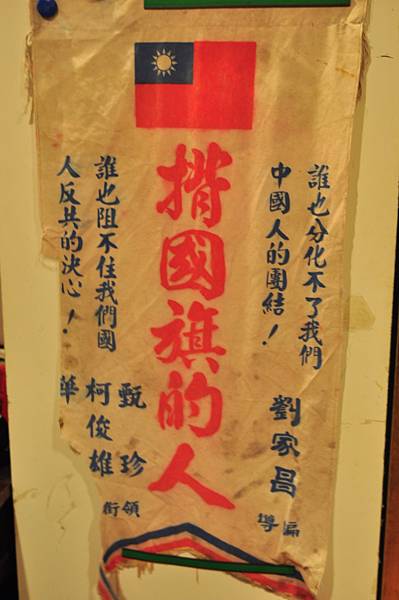 誰也分化不了我們
中國人的團結！
劉家昌
編導
揹國旗的人
誰也阻不住我們國
人反共的決心！
甄珍
柯俊雄
華
領銜